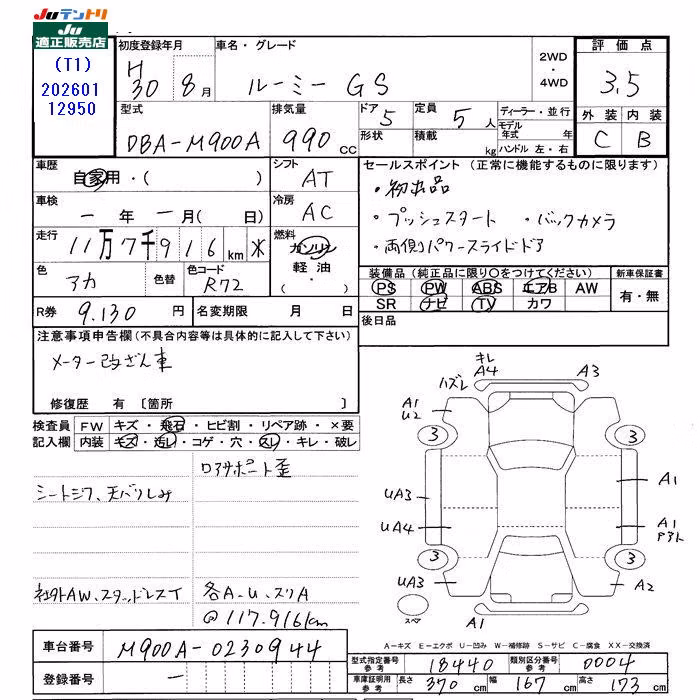 JUテントリ
JU
適正販売店
(T1)
202601
12950
初度登録年月
H30 8月
車名・グレード
ルーミー GS
2WD
・
4WD
評価点
3.5
外装 内装
C B
型式
DBA-M900A
排気量
990 cc
ドア 5
形状
定員 5人
積載 kg
ディーラー・並行
モデル年式 年
ハンドル 左・右
車歴
自家用・( )
シフト
AT
車検
一年一月(日)
冷房
AC
走行
11万7千916km ※
燃料
ガソリン
軽油
・( )
色
アカ
色替
色コード
R72
R券 9.130円
名変期限 月 日
セールスポイント (正常に機能するものに限ります)
・初出品
・プッシュスタート ・バックカメラ
・両側パワースライドドア
装備品(純正品に限り○をつけてください)
PS PW ABS エアB AW
SR ナビ TV カワ
新車保証書
有・無
後日品
注意事項申告欄(不具合内容等は具体的に記入して下さい)
メーター改ざん車
修復歴 有 〔箇所 〕
検査員記入欄
FW キズ・飛石・ヒビ割・リペア跡・×要
内装 キズ・汚レ・コゲ・穴・スレ・キレ・破レ
ロアサポート歪
シートシワ、天バリしみ
社外AW、スタッドレスT
各A、U、スリA
@117.916km
キレ
A4
ハズレ
A3
A1
U2
3
3
UA3
A1
UA4
A1
アタト
3
3
UA3
A2
スペア
A1
A-キズ E-エクボ U-凹み W-補修跡 S-サビ C-腐食 XX-交換済
車台番号 M900A-0230944
登録番号 一
型式指定番号参考 18440
類別区分番号参考 0004
車庫証明用参考 長さ 370 cm 幅 167 cm 高さ 173 cm